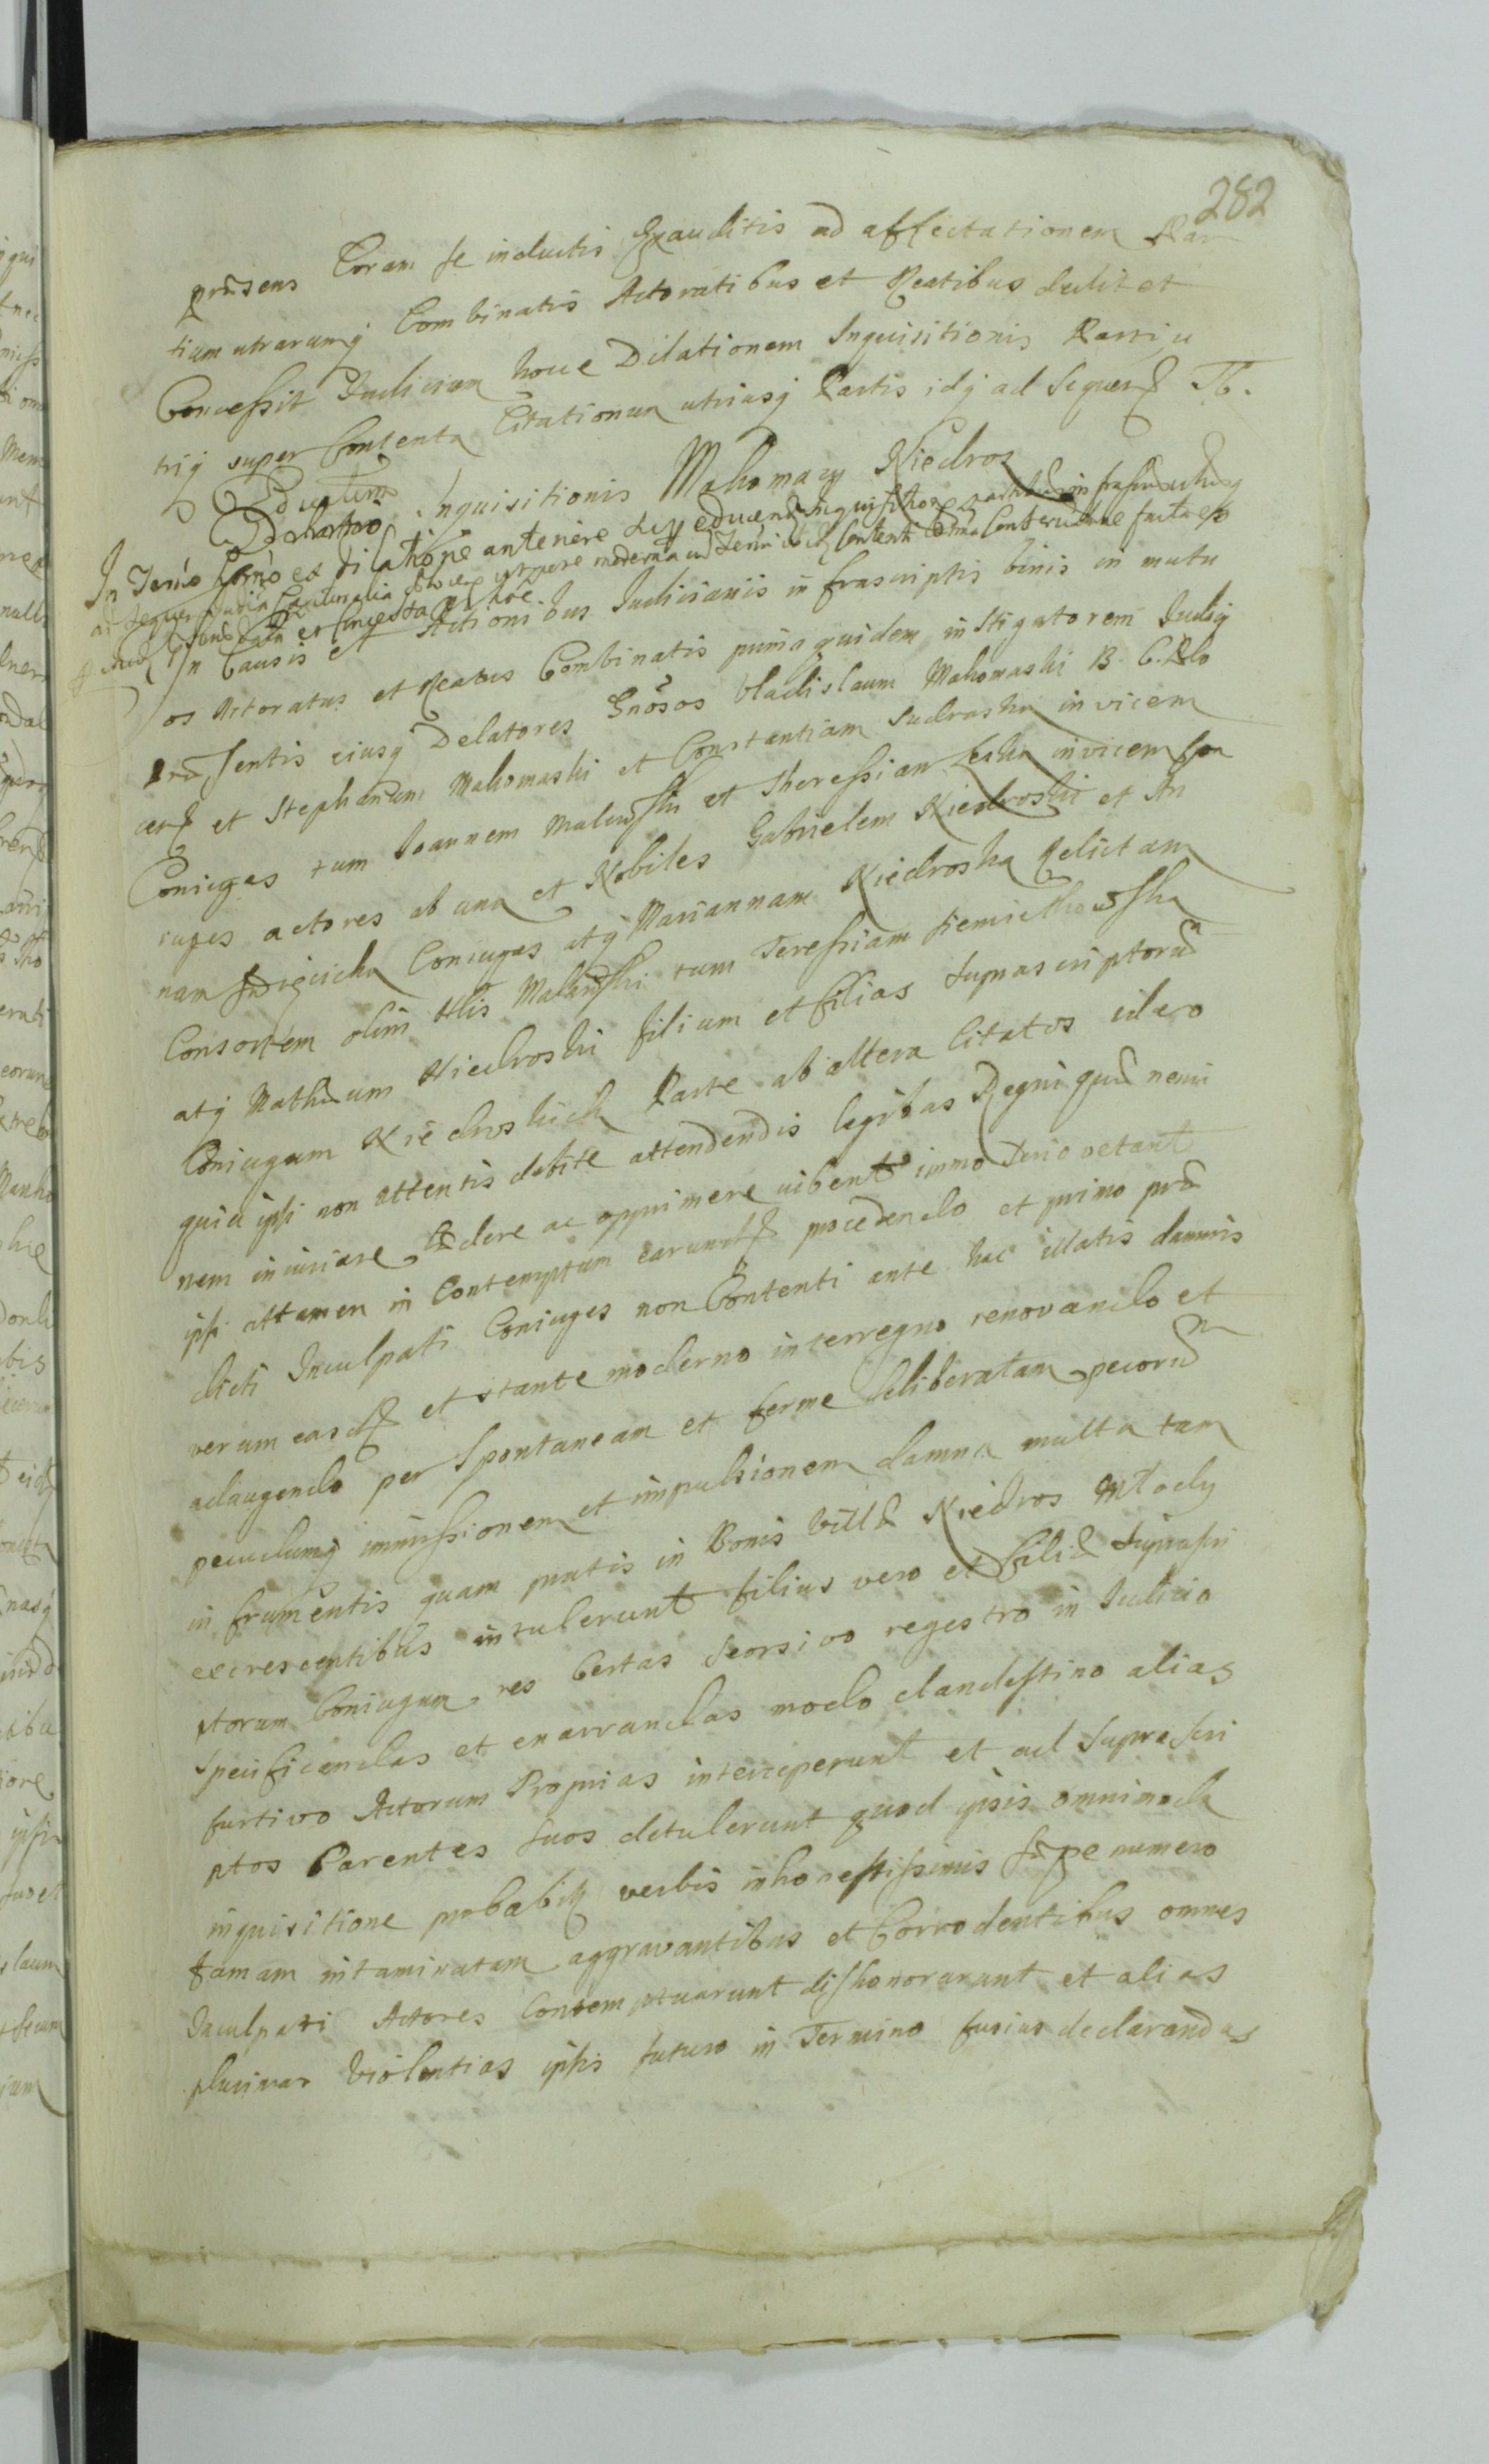 282
præsens Coram se inductis Exauditis ad affectationem Par
tium utrarumq Combinatis Actoratibus et Reatibus dedit et
Concessit Iudicium hocce Dilationem Inquisitionis Parti u
triq super Contenta Citationum utriusq Partis idq ad Sequen
Inquisitionis Makomazy Niedros
In Termino ex dilatione anteriore
In Causis et Actionibus Iudiciariis infrascriptis binis in mutu
os Actoratus et Reatus Combinatis prima quidem instigatorem Iudicij
præsentis eiusq Delatores Gnosos Vladislaum Makomaski B. C. Plo
cen et Stephanum Makomaski et Constantiam Sudraska invicem
Coniuges tum Ioannem Malewski et Theressiam Leska invicem Con
iuges actores ab una et Nobiles Gabrielem Niedroski et An
nam Coniuges atq Mariannam Niedroska Relictam
Consortem olim Nlis tum Teressiam
atq Mathæum Niedroski filium et filias suprascriptorum
Coniugum Niedroskich Parte ab altera Citatos ideo
quia ipsi non attentis debite attendendis legibus Regni quæ nemi
nem iniuriare lædere ac opprimere iubent immo serio vetant
ipsi attamen in Contemptum earund procedendo et primo præ
dicti Inculpati Coniuges non Contenti ante hac illatis damnis
verum easd et stante moderno interregno renovando et
adaugendo per Spontaneam et ferme deliberatam pecorum
pecudumq immissionem et impulsionem damna multa tam
in frumentis quam pratis in Bonis Villæ Niedros Młody
excrescentibus intulerunt filius vero et filiæ suprascri
ptorum Coniugum res Certas Seorsivo regestro in Iudicio
specificandas et enarrandas modo clandestino alias
furtivo Actorum Proprias interceperunt et ad Suprascri
ptos Parentes suos detulerunt quod ipsis omnimoda
inquisitione probabitur verbis inhonestissimis sæpe numero
famam intaminatam aggravantibus et Corrodentibus omnes
Inculpati Actores Contemptuarunt dishonorarunt et alias
plurimas Violentias ipsis futuro in Termino fusius declarandas